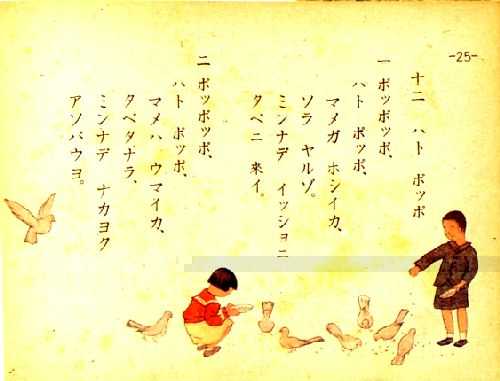 -25-
十二 ハト ポッポ
一 ポッポッポ、
ハト ポッポ、
マメガ ホシイカ、
ソラ ヤルゾ。
ミンナデ イッショニ
タベニ 來イ。
二 ポッポッポ、
ハト ポッポ、
マメハ ウマイカ、
タベタナラ、
ミンナデ ナカヨク
アソバウヨ。